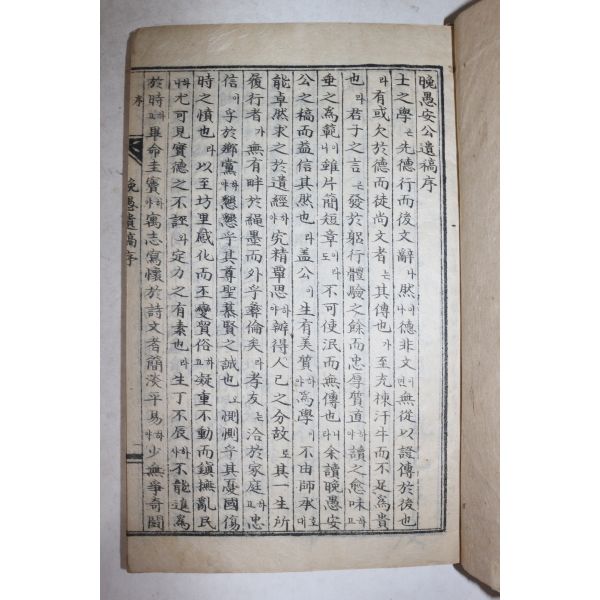 晩愚安公遺稿序
士之學는先德行而後文辭나然이나德非文이면無從以證傳於後也
라有或欠於德而徒尚文者는其傳也가至充棟汗牛而不足爲貴
也라君子之言은發於躬行體驗之餘而忠厚質直야讀之愈味하고
垂之爲範이니雖片簡短章이라도不可使泯而無傳也니라余讀晩愚安
公之稿而益信其然也라盖公이生有美質하야爲學이不由師承호대
能卓然求之於遺經하야究精單思하야辨得人己之分故로其一生所
履行者가無有畔於繩墨而外乎彛倫矣라孝友는洽於家庭하고忠
信이孚於鄕黨하야懇懇乎其尊聖慕賢之誠也고惻惻乎其憂國傷
時之憤也라以至坊里感化而丕變質俗하고凝重不動而鎭撫亂民
하니尤可見實德之不誣와定力之有素也라生丁不辰하사不能進爲
於時하고畢命圭竇하야寓志寫懷於詩文者簡淡平易하야少無爭奇鬪
序
晩愚遺稿序
一